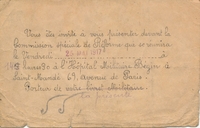 Vous êtes invité à vous présenter devant la
Commission spéciale de Réforme qui se réunira
le Vendredi
à l'Hôpital Militaire Bégin à
Saint-Mandé 69, avenue de Paris.
Porteur de votre livret militaire.